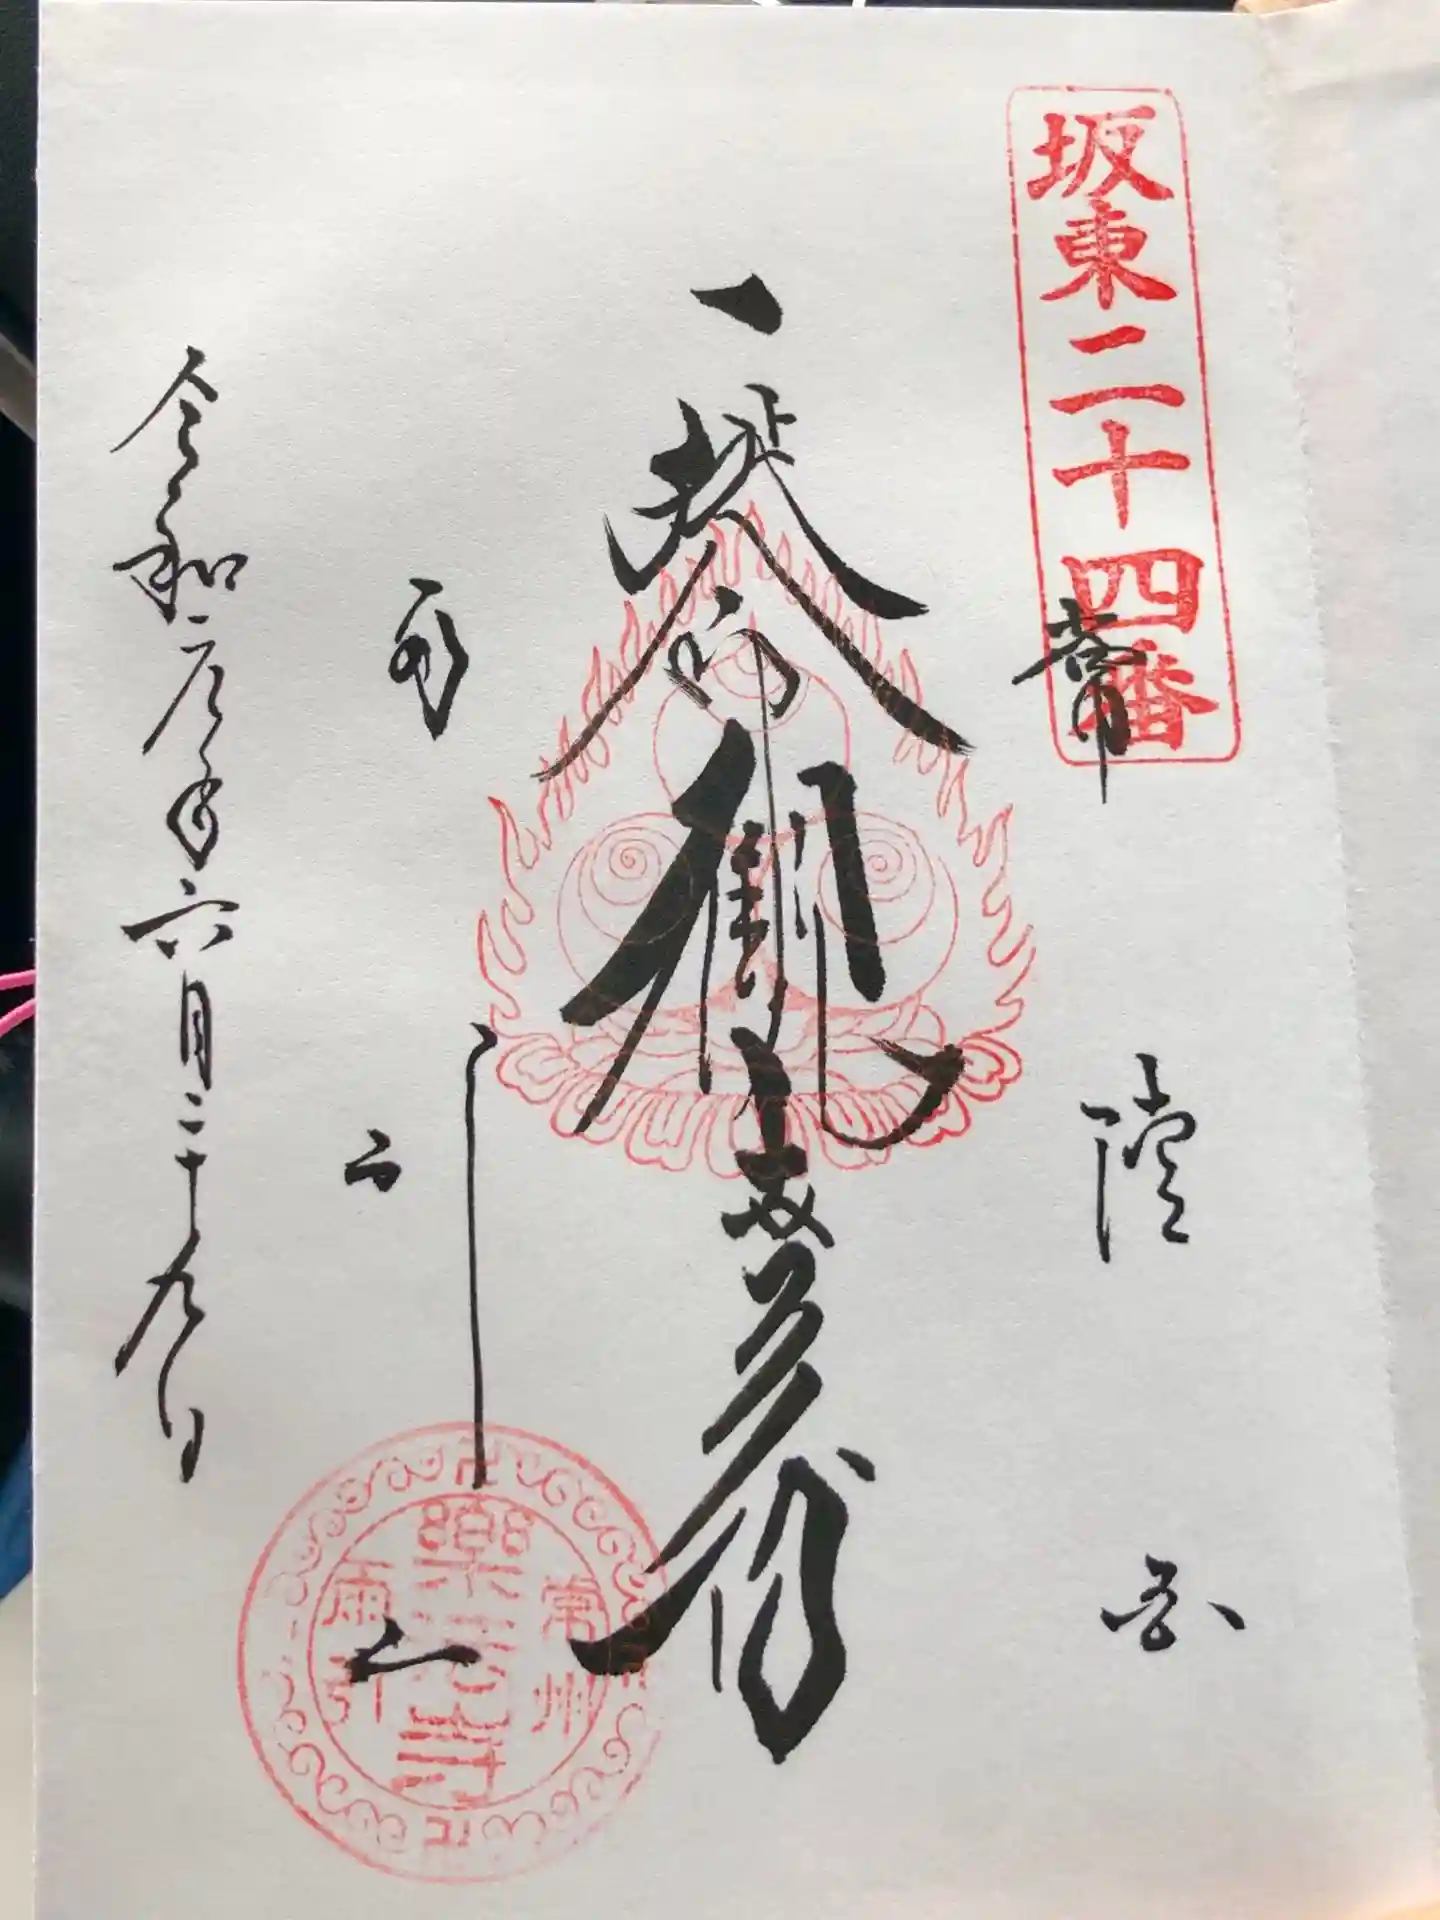 坂東二十四番
常陸国
奉拝
観世音
雨引山
令和元年六月二十九日
常州
樂法寺
雨引